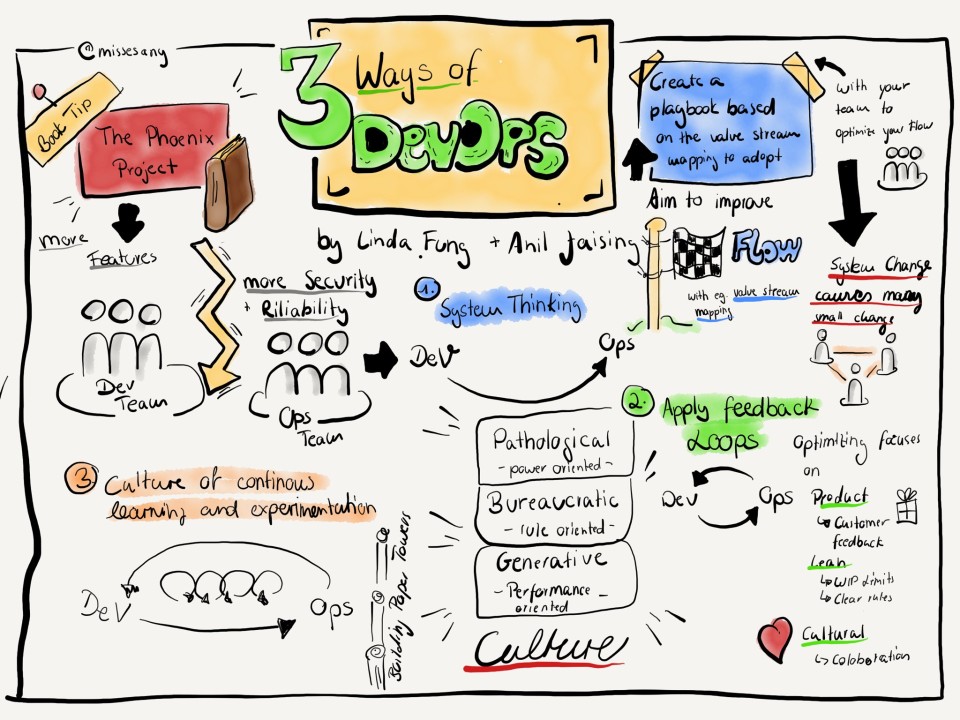 @missesany
3 Ways of
DevOps
by Linda Fung + Anil Jaising
Book Tip
The Phoenix
Project
more
Features
Dev
Team
more Security
+ Riliability
Ops
Team
1.
System Thinking
Dev
Ops
Create a
playbook based
on the value stream
mapping to adopt
Aim to improve
Flow
with eg. value stream
mapping
with your
team to
optimize your Flow
System Change
causes many
small change
2.
Apply feedback
Loops
Dev
Ops
Optimizing focuses
on
Product
↳ Customer
feedback
Lean
↳ WIP Limits
↳ Clear rules
Cultural
↳ Coloboration
Pathological
- power oriented -
Bureaucratic
- rule oriented -
Generative
- Performance -
oriented
Culture
3
Culture of continous
learning and experimentation
Dev
Ops
Building Paper Towers